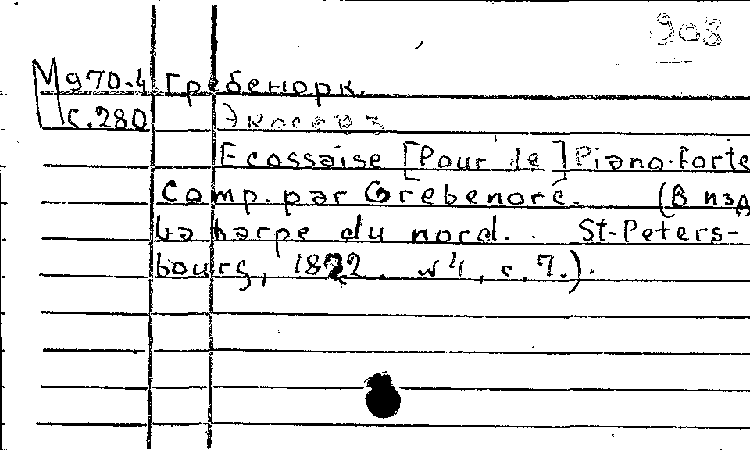 903
М970-4 Гребенорк.
с.280 Экосез
Ecossaise [Pour le] Piano-forte
Comp. par Grebenorc. (В изд
La harpe du nord. St-Peters-
bourg, 1822. N 4, с. 7.).